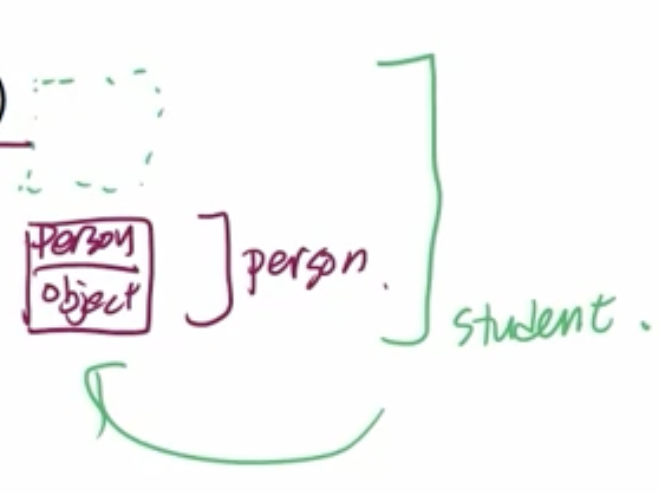 person
object
person.
student.